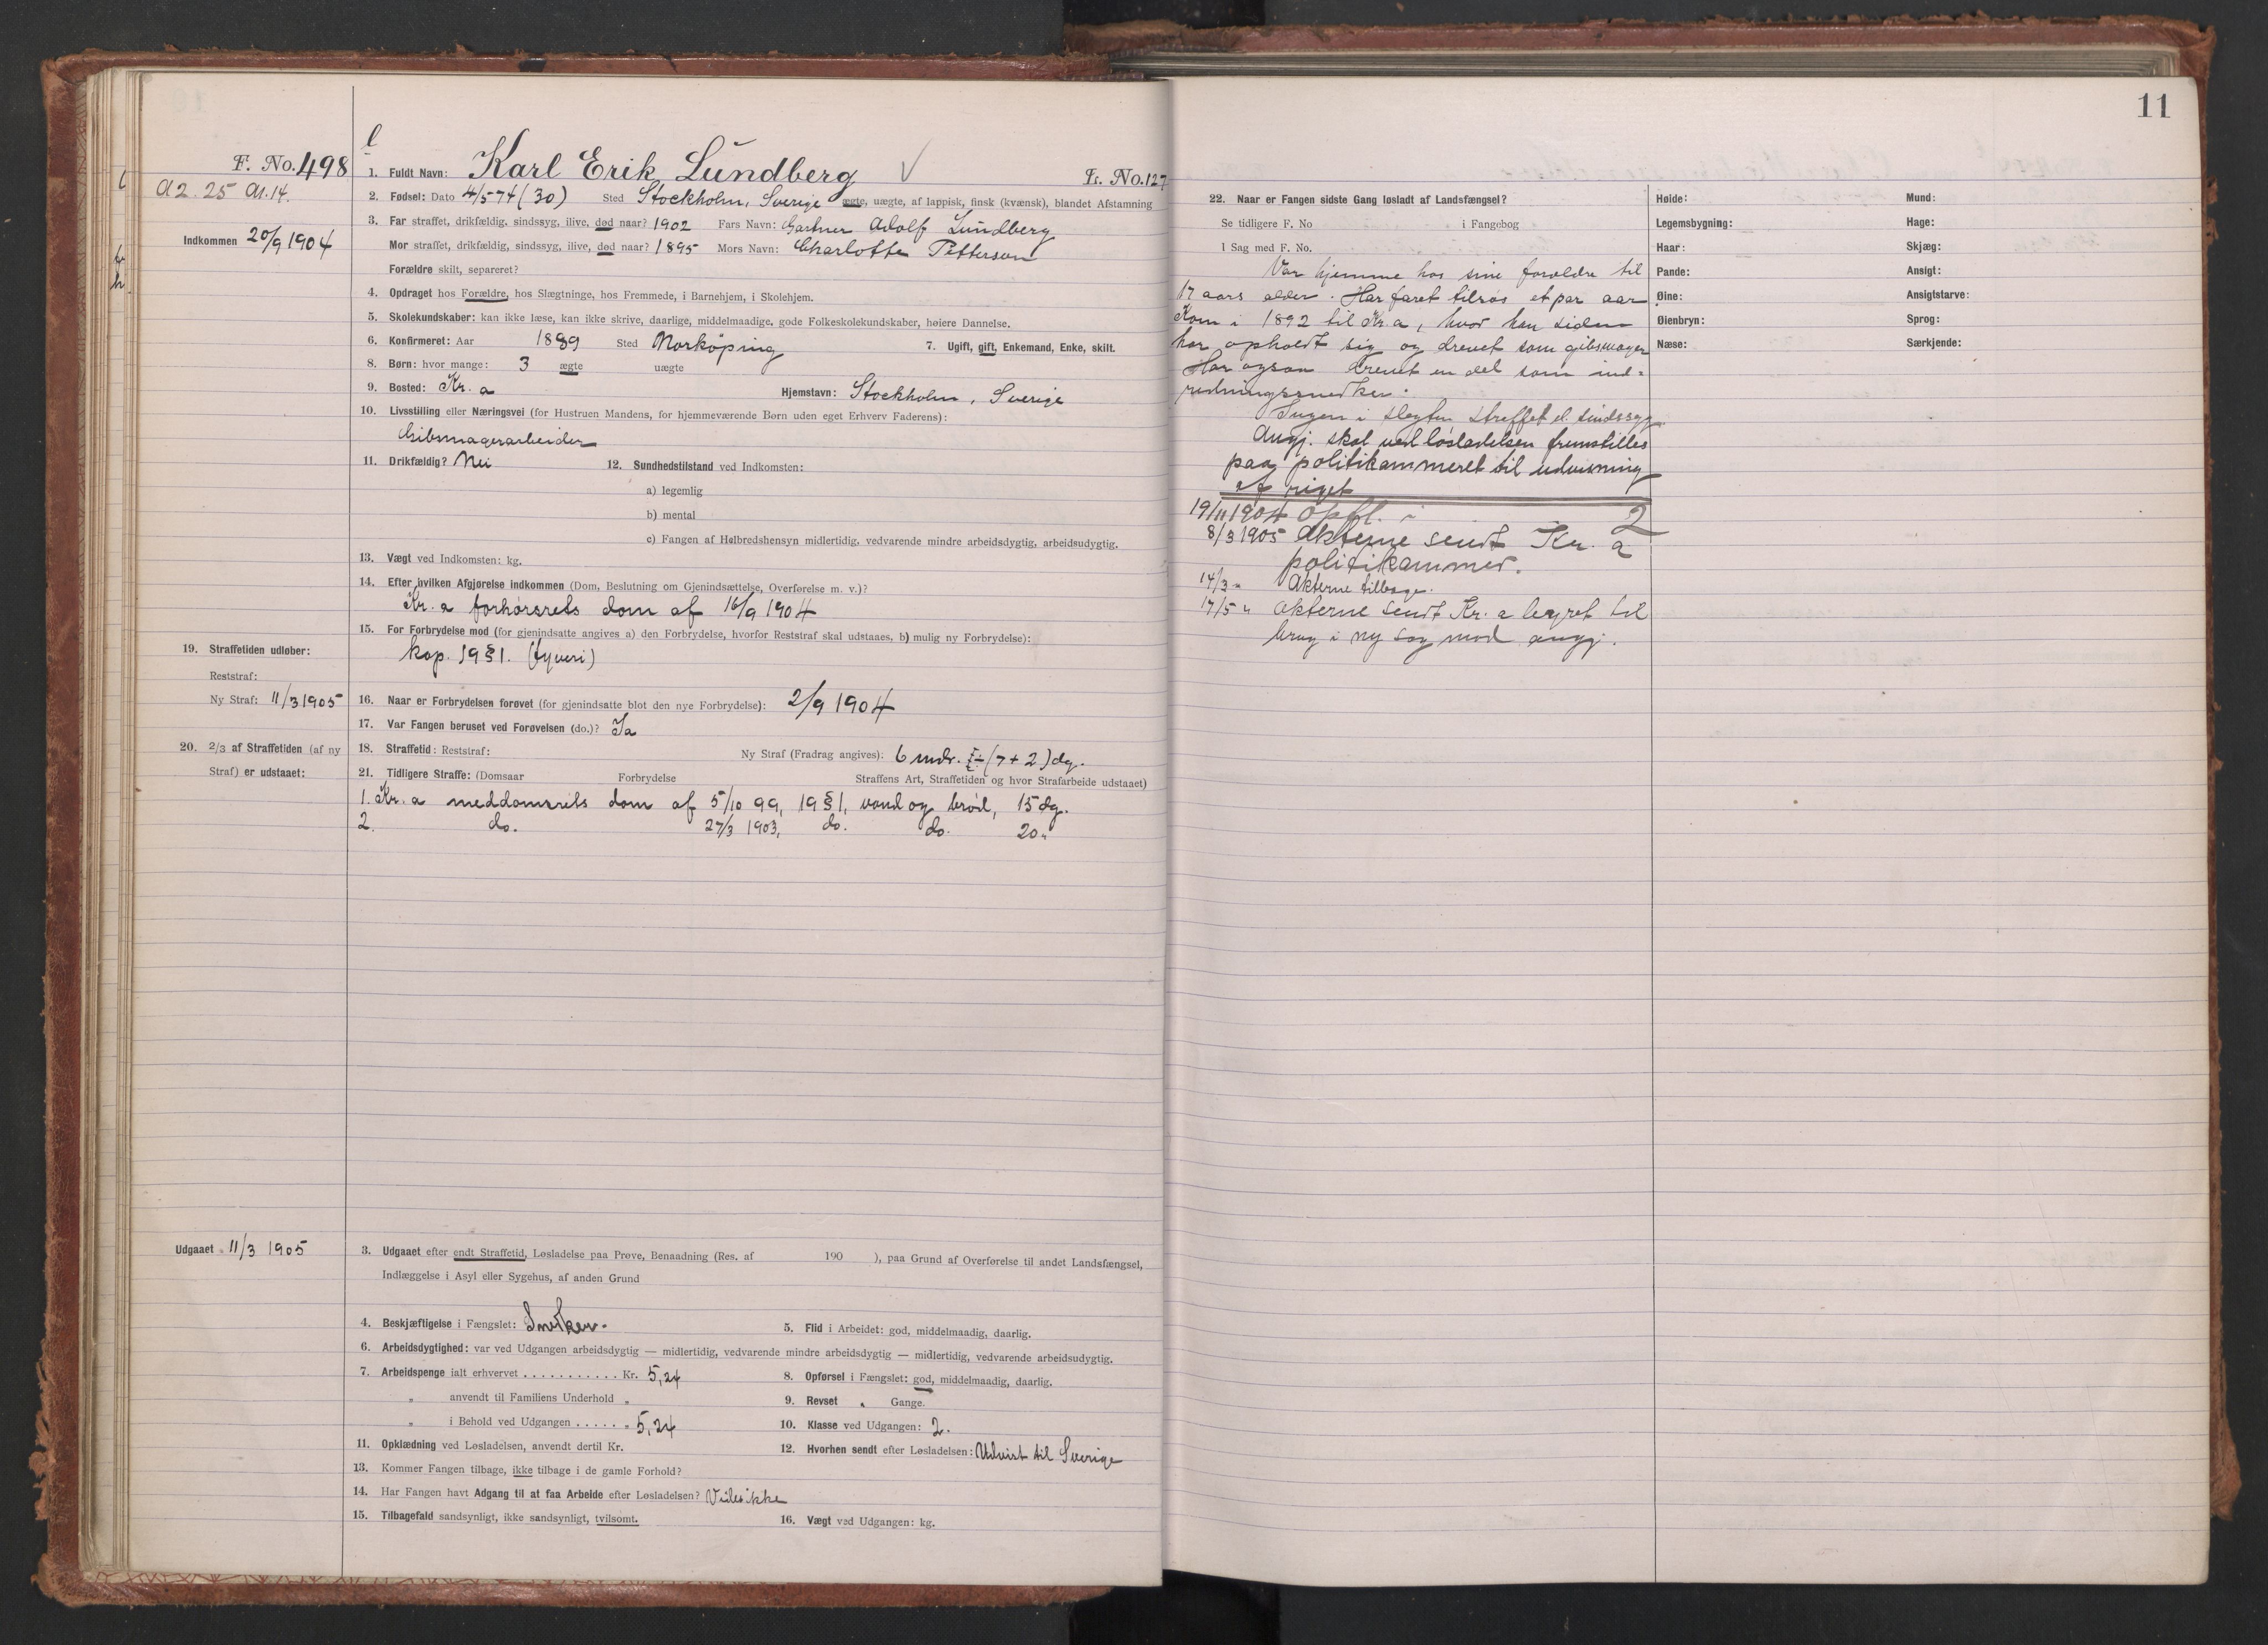 11
l
F. No. 498
a 2. 25 Al. 14.
Indkommen 20/9 1904
1. Fuldt Navn: Karl Erik Lundberg V Fr. No. 127
2. Fødsel: Dato 4/5 74 (30) Sted Stockholm, Sverige ægte, uægte, af lappisk, finsk (kvænsk), blandet Afstamning
3. Far straffet, drikfældig, sindssyg, ilive, død naar? 1902 Fars Navn: Gartner Adolf Lundberg
Mor straffet, drikfældig, sindssyg, ilive, død naar? 1895 Mors Navn: Charlotte Petterson
Forældre skilt, separeret?
4. Opdraget hos Forældre, hos Slægtninge, hos Fremmede, i Barnehjem, i Skolehjem.
5. Skolekundskaber: kan ikke læse, kan ikke skrive, daarlige, middelmaadige, gode Folkeskolekundskaber, høiere Dannelse.
6. Konfirmeret: Aar 1889 Sted Norköping 7. Ugift, gift, Enkemand, Enke, skilt.
8. Børn: hvor mange: 3 ægte uægte
9. Bosted: Kr. a Hjemstavn: Stockholm, Sverige
10. Livsstilling eller Næringsvei (for Hustruen Mandens, for hjemmeværende Børn uden eget Erhverv Faderens):
Gibsmagerarbeider
11. Drikfældig? Nei 12. Sundhedstilstand ved Indkomsten:
a) legemlig
b) mental
c) Fangen af Helbredshensyn midlertidig, vedvarende mindre arbeidsdygtig, arbeidsudygtig.
13. Vægt ved Indkomsten: kg.
14. Efter hvilken Afgjørelse indkommen (Dom, Beslutning om Gjenindsættelse, Overførelse m. v.)?
Kr. a forhørsrets dom af 16/9 1904
15. For Forbrydelse mod (for gjenindsatte angives a) den Forbrydelse, hvorfor Reststraf skal udstaaes, b) mulig ny Forbrydelse):
kap. 19 § 1. (tyveri)
19. Straffetiden udløber:
Reststraf:
Ny Straf: 11/3 1905
16. Naar er Forbrydelsen forøvet (for gjenindsatte blot den nye Forbrydelse): 2/9 1904
17. Var Fangen beruset ved Forøvelsen (do.)? Ja
20. 2/3 af Straffetiden (af ny
Straf) er udstaaet:
18. Straffetid: Reststraf: Ny Straf (Fradrag angives): 6 mdr. ÷ (7 + 2) dg.
21. Tidligere Straffe: (Domsaar Forbrydelse Straffens Art, Straffetiden og hvor Strafarbeide udstaaet)
1. Kr. a meddomsrets dom af 5/10 99, 19 § 1, vand og brød, 15 dg.
2. do. 27/3 1903, do. do. 20 "
Udgaaet 11/3 1905
3. Udgaaet efter endt Straffetid, Løsladelse paa Prøve, Benaadning (Res. af 190 ), paa Grund af Overførelse til andet Landsfængsel,
Indlæggelse i Asyl eller Sygehus, af anden Grund
4. Beskjæftigelse i Fængslet: Snekker. 5. Flid i Arbeidet: god, middelmaadig, daarlig.
6. Arbeidsdygtighed: var ved Udgangen arbeidsdygtig — midlertidig, vedvarende mindre arbeidsdygtig — midlertidig, vedvarende arbeidsudygtig.
7. Arbeidspenge ialt erhvervet . . . . . . . . . . . Kr. 5,24 8. Opførsel i Fængslet: god, middelmaadig, daarlig.
" anvendt til Familiens Underhold " 9. Revset " Gange.
" i Behold ved Udgangen . . . . . " 5,24 10. Klasse ved Udgangen: 2.
11. Opklædning ved Løsladelsen, anvendt dertil Kr. 12. Hvorhen sendt efter Løsladelsen: Udvist til Sverige
13. Kommer Fangen tilbage, ikke tilbage i de gamle Forhold?
14. Har Fangen havt Adgang til at faa Arbeide efter Løsladelsen? Vides ikke
15. Tilbagefald sandsynligt, ikke sandsynligt, tvilsomt. 16. Vægt ved Udgangen: kg.
22. Naar er Fangen sidste Gang løsladt af Landsfængsel?
Se tidligere F. No i Fangebog
I Sag med F. No.
Var hjemme hos sine foreldre til
17 aars alder. Har faret tilsøs et par aar
Kom i 1892 til Kr. a, hvor han siden
har opholdt sig og drevet som gibsmager
Har ogsaa drevet en del som ind=
redningssnedker.
Ingen i slegten straffet el. sindssyg
Angj. skal ved løsladelsen fremstilles
paa politikammeret til udvisning
af riget
19/11 1904 opfl. i 2
8/3 1905 Akterne sendt Kr. a
politikammer.
14/3 " Akterne tilbage.
17/5 " Akterne sendt Kr. a lagret til
brug i ny sag mod angj.
Høide: Mund:
Legemsbygning: Hage:
Haar: Skjæg:
Pande: Ansigt:
Øine: Ansigtsfarve:
Øienbryn: Sprog:
Næse: Særkjende: